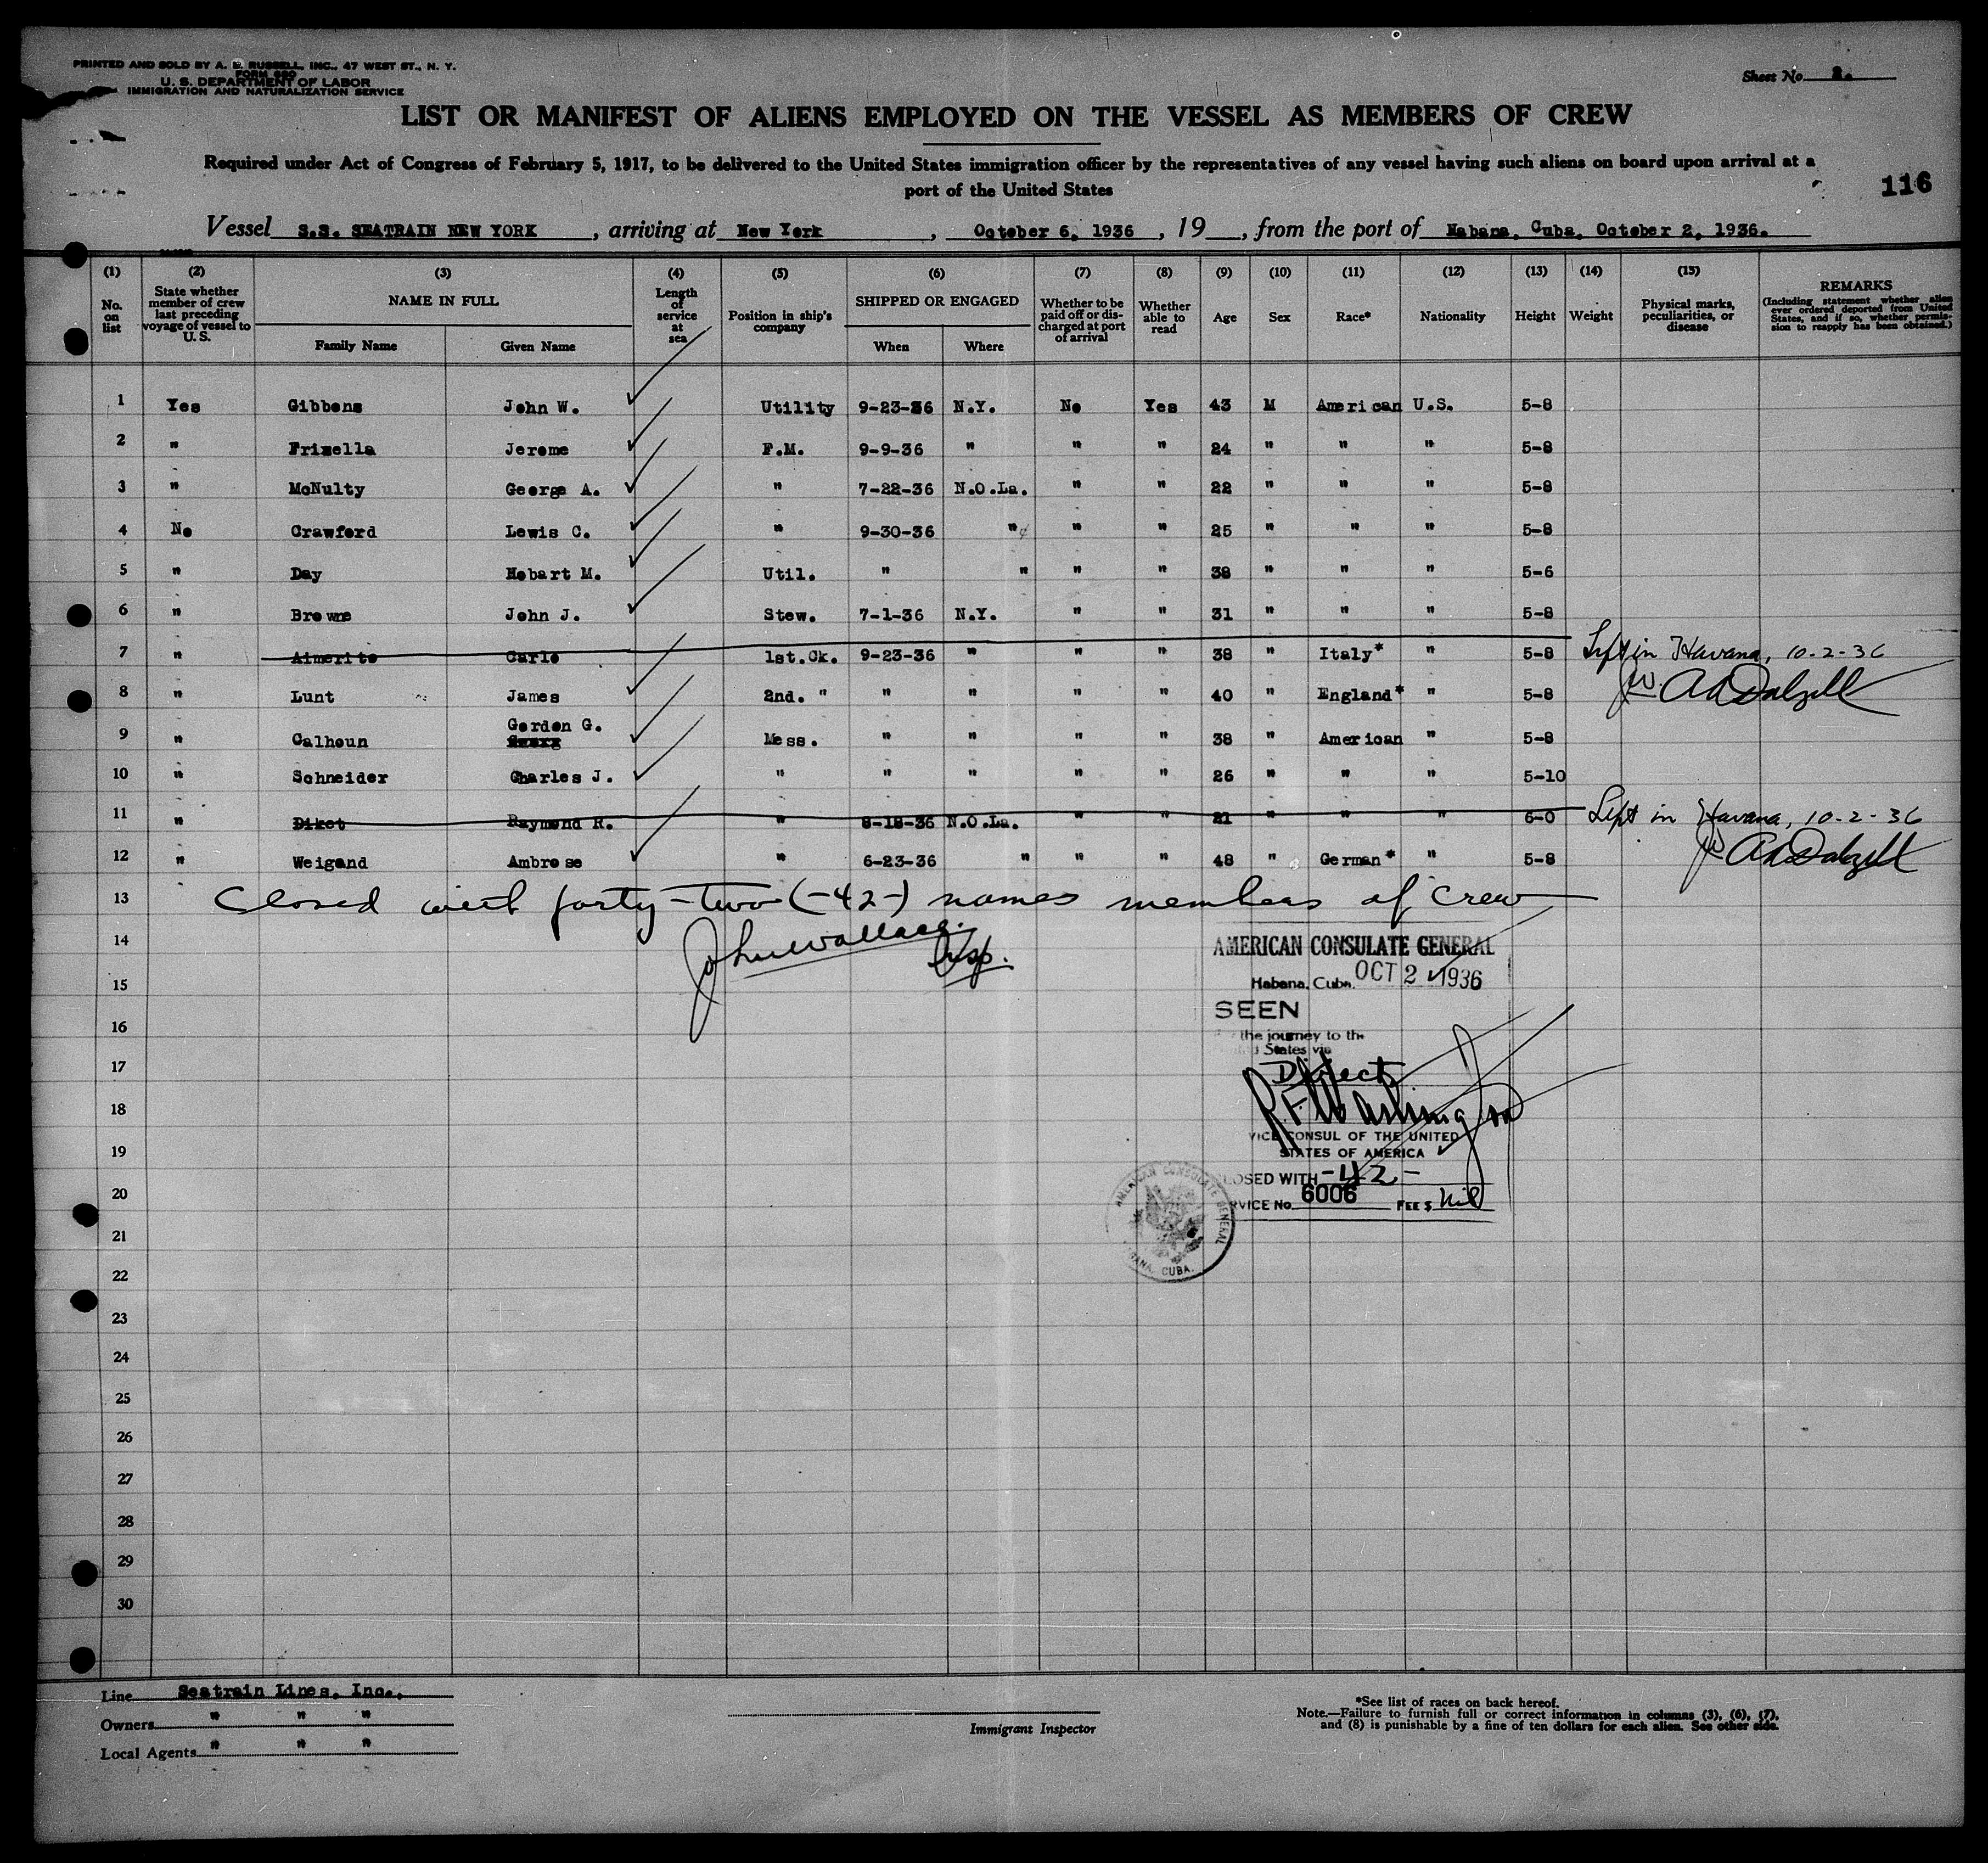 PRINTED AND SOLD BY A. E. RUSSELL, INC., 47 WEST ST., N. Y.
FORM 680
U. S. DEPARTMENT OF LABOR
IMMIGRATION AND NATURALIZATION SERVICE
Sheet No. 2.
LIST OR MANIFEST OF ALIENS EMPLOYED ON THE VESSEL AS MEMBERS OF CREW
Required under Act of Congress of February 5, 1917, to be delivered to the United States immigration officer by the representatives of any vessel having such aliens on board upon arrival at a
port of the United States
116
Vessel S.S. SEATRAIN NEW YORK, arriving at New York, October 6, 1936, 19, from the port of Habana, Cuba, October 2, 1936.
(1) (2) (3) (4) (5) (6) (7) (8) (9) (10) (11) (12) (13) (14) (15)
No. on list
State whether member of crew last preceding voyage of vessel to U. S.
NAME IN FULL
Family Name Given Name
Length of service at sea
Position in ship's company
SHIPPED OR ENGAGED
When Where
Whether to be paid off or discharged at port of arrival
Whether able to read
Age
Sex
Race*
Nationality
Height
Weight
Physical marks, peculiarities, or disease
REMARKS
(Including statement whether alien ever ordered deported from United States, and if so, whether permission to reapply has been obtained.)
1 Yes Gibbens John W. Utility 9-23-36 N.Y. No Yes 43 M American U.S. 5-8
2 " Frizella Jerome F.M. 9-9-36 " " " 24 " " " 5-8
3 " McNulty George A. " 7-22-36 N.O.La. " " 22 " " " 5-8
4 No Crawford Lewis C. " 9-30-36 " " " 25 " " " 5-8
5 " Day Hobart M. Util. " " " " 38 " " " 5-6
6 " Browne John J. Stew. 7-1-36 N.Y. " " 31 " " " 5-8
7 " Aimerito Carlo 1st.Ck. 9-23-36 " " " 38 " Italy* " 5-8 Left in Havana, 10-2-36
8 " Lunt James 2nd. " " " " " 40 " England* " 5-8 A A Dalzell
9 " Calhoun Gordon G. Mess. " " " " 38 " American " 5-8
10 " Schneider Charles J. " " " " " 26 " " " 5-10
11 " Diket Raymond R. " 8-18-36 N.O.La. " " 21 " " " 6-0 Left in Havana, 10-2-36
12 " Weigand Ambrose " 6-23-36 " " " 48 " German* " 5-8 A A Dalzell
13 Closed with forty-two (-42-) names members of crew
14 John Wallace Insp.
AMERICAN CONSULATE GENERAL
15
Habana, Cuba. OCT 2 1936
SEEN
16
the journey to the
States via
17
Direct
18
R F Washington
VICE CONSUL OF THE UNITED
19
STATES OF AMERICA
CLOSED WITH -42-
20
SERVICE No. 6006 FEE $ Nil
AMERICAN CONSULATE GENERAL
HABANA, CUBA.
21
22
23
24
25
26
27
28
29
30
Line Seatrain Lines, Inc.,
Owners " " "
Local Agents " " "
Immigrant Inspector
*See list of races on back hereof.
Note.—Failure to furnish full or correct information in columns (3), (6), (7),
and (8) is punishable by a fine of ten dollars for each alien. See other side.